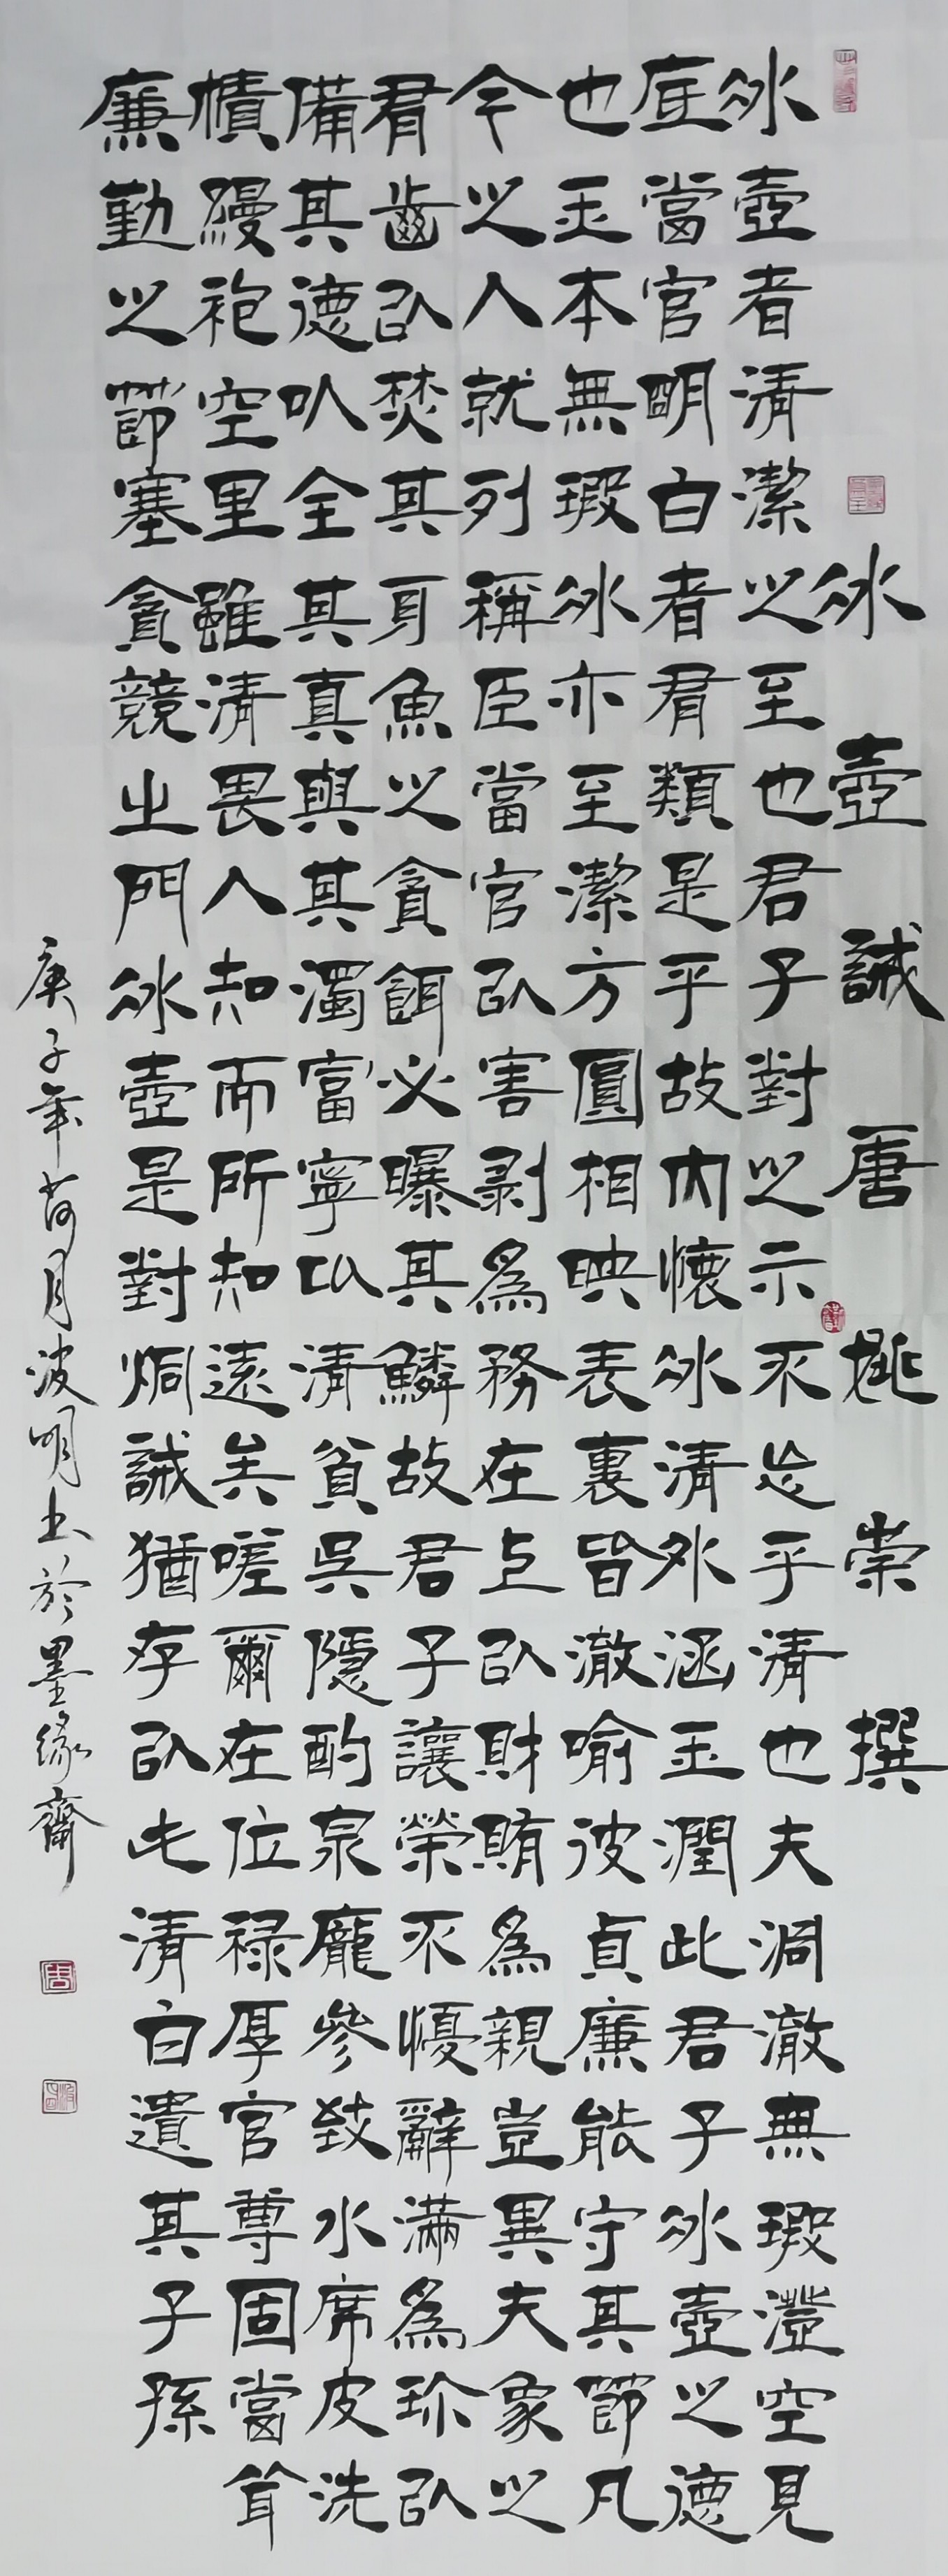 冰壺誡 唐 姚崇 撰
冰壺者清潔之至也君子對之示不忘乎清也夫洞澈無瑕澄空見
底當官明白者有類是乎故內懷冰清外涵玉潤此君子冰壺之德
也玉本無瑕冰亦至潔方圓相映表裏皆澈喻彼貞廉能守其節凡
今之人就列稱臣當官以害剥為務在上以財賄為親豈異夫象之
有齒以焚其身魚之貪餌必曝其鱗故君子讓榮不憂辭滿為珍以
備其德以全其真與其濁富寧以清貧吳隱酌泉龐參致水席皮洗
幘縕袍空里雖清畏人知而所知遠矣嗟爾在位祿厚官尊固當聳
廉勤之節塞貪競之門冰壺是對炯誡猶存以此清白遺其子孫
庚子年荷月波明书於墨緣齋
周